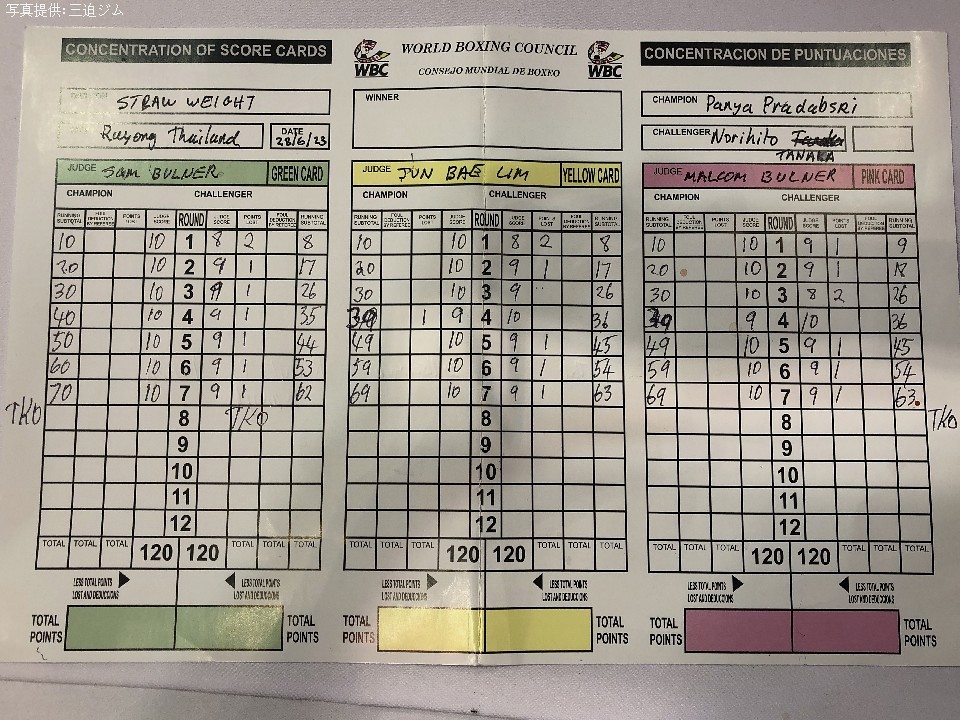 写真提供:三迫ジム
CONCENTRATION OF SCORE CARDS
WBC
WORLD BOXING COUNCIL
CONSEJO MUNDIAL DE BOXEO
WBC
CONCENTRACION DE PUNTUACIONES
STRAW WEIGHT
WINNER
CHAMPION Panya Pradabsri
Rayong Thailand
DATE 28/6/23
CHALLENGER Norihito
TANAKA
JUDGE SAM BULNER GREEN CARD
CHAMPION CHALLENGER
RUNNING SUBTOTAL FOUL DEDUCTION BY REFEREE POINTS LOST JUDGE SCORE ROUND JUDGE SCORE POINTS LOST FOUL DEDUCTION BY REFEREE RUNNING SUBTOTAL
10 10 1 8 2 8
20 10 2 9 1 17
30 10 3 9 1 26
40 10 4 9 1 35
50 10 5 9 1 44
60 10 6 9 1 53
70 10 7 9 1 62
TKO 8 TKO
9
10
11
12
TOTAL TOTAL TOTAL 120 120 TOTAL TOTAL TOTAL
LESS TOTAL POINTS LOST AND DEDUCCIONS LESS TOTAL POINTS LOST AND DEDUCCIONS
TOTAL POINTS TOTAL POINTS
JUDGE JUN BAE LIM YELLOW CARD
CHAMPION CHALLENGER
RUNNING SUBTOTAL FOUL DEDUCTION BY REFEREE POINTS LOST JUDGE SCORE ROUND JUDGE SCORE POINTS LOST FOUL DEDUCTION BY REFEREE RUNNING SUBTOTAL
10 10 1 8 2 8
20 10 2 9 1 17
30 10 3 9 26
1 9 4 10 36
49 10 5 9 1 45
59 10 6 9 1 54
69 10 7 9 1 63
8
9
10
11
12
TOTAL TOTAL TOTAL 120 120 TOTAL TOTAL TOTAL
LESS TOTAL POINTS LOST AND DEDUCCIONS LESS TOTAL POINTS LOST AND DEDUCCIONS
TOTAL POINTS TOTAL POINTS
JUDGE MALCOM BULNER PINK CARD
CHAMPION CHALLENGER
RUNNING SUBTOTAL FOUL DEDUCTION BY REFEREE POINTS LOST JUDGE SCORE ROUND JUDGE SCORE POINTS LOST FOUL DEDUCTION BY REFEREE RUNNING SUBTOTAL
10 10 1 9 1 9
20 10 2 9 1 18
30 10 3 8 2 26
9 4 10 36
49 10 5 9 1 45
59 10 6 9 1 54
69 10 7 9 1 63
8 TKO
9
10
11
12
TOTAL TOTAL TOTAL 120 120 TOTAL TOTAL TOTAL
LESS TOTAL POINTS LOST AND DEDUCCIONS LESS TOTAL POINTS LOST AND DEDUCCIONS
TOTAL POINTS TOTAL POINTS